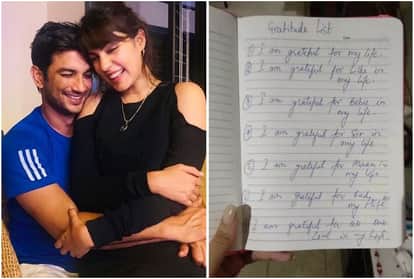 Gratitude List
① I am grateful for my life
② I am grateful for in
my life
③ I am grateful for Bebu in
my life
④ I am grateful for Sir in
my life
⑤ I am grateful for Ma'am in
my life
I am grateful for in
my life
I am grateful for all the
love in my life